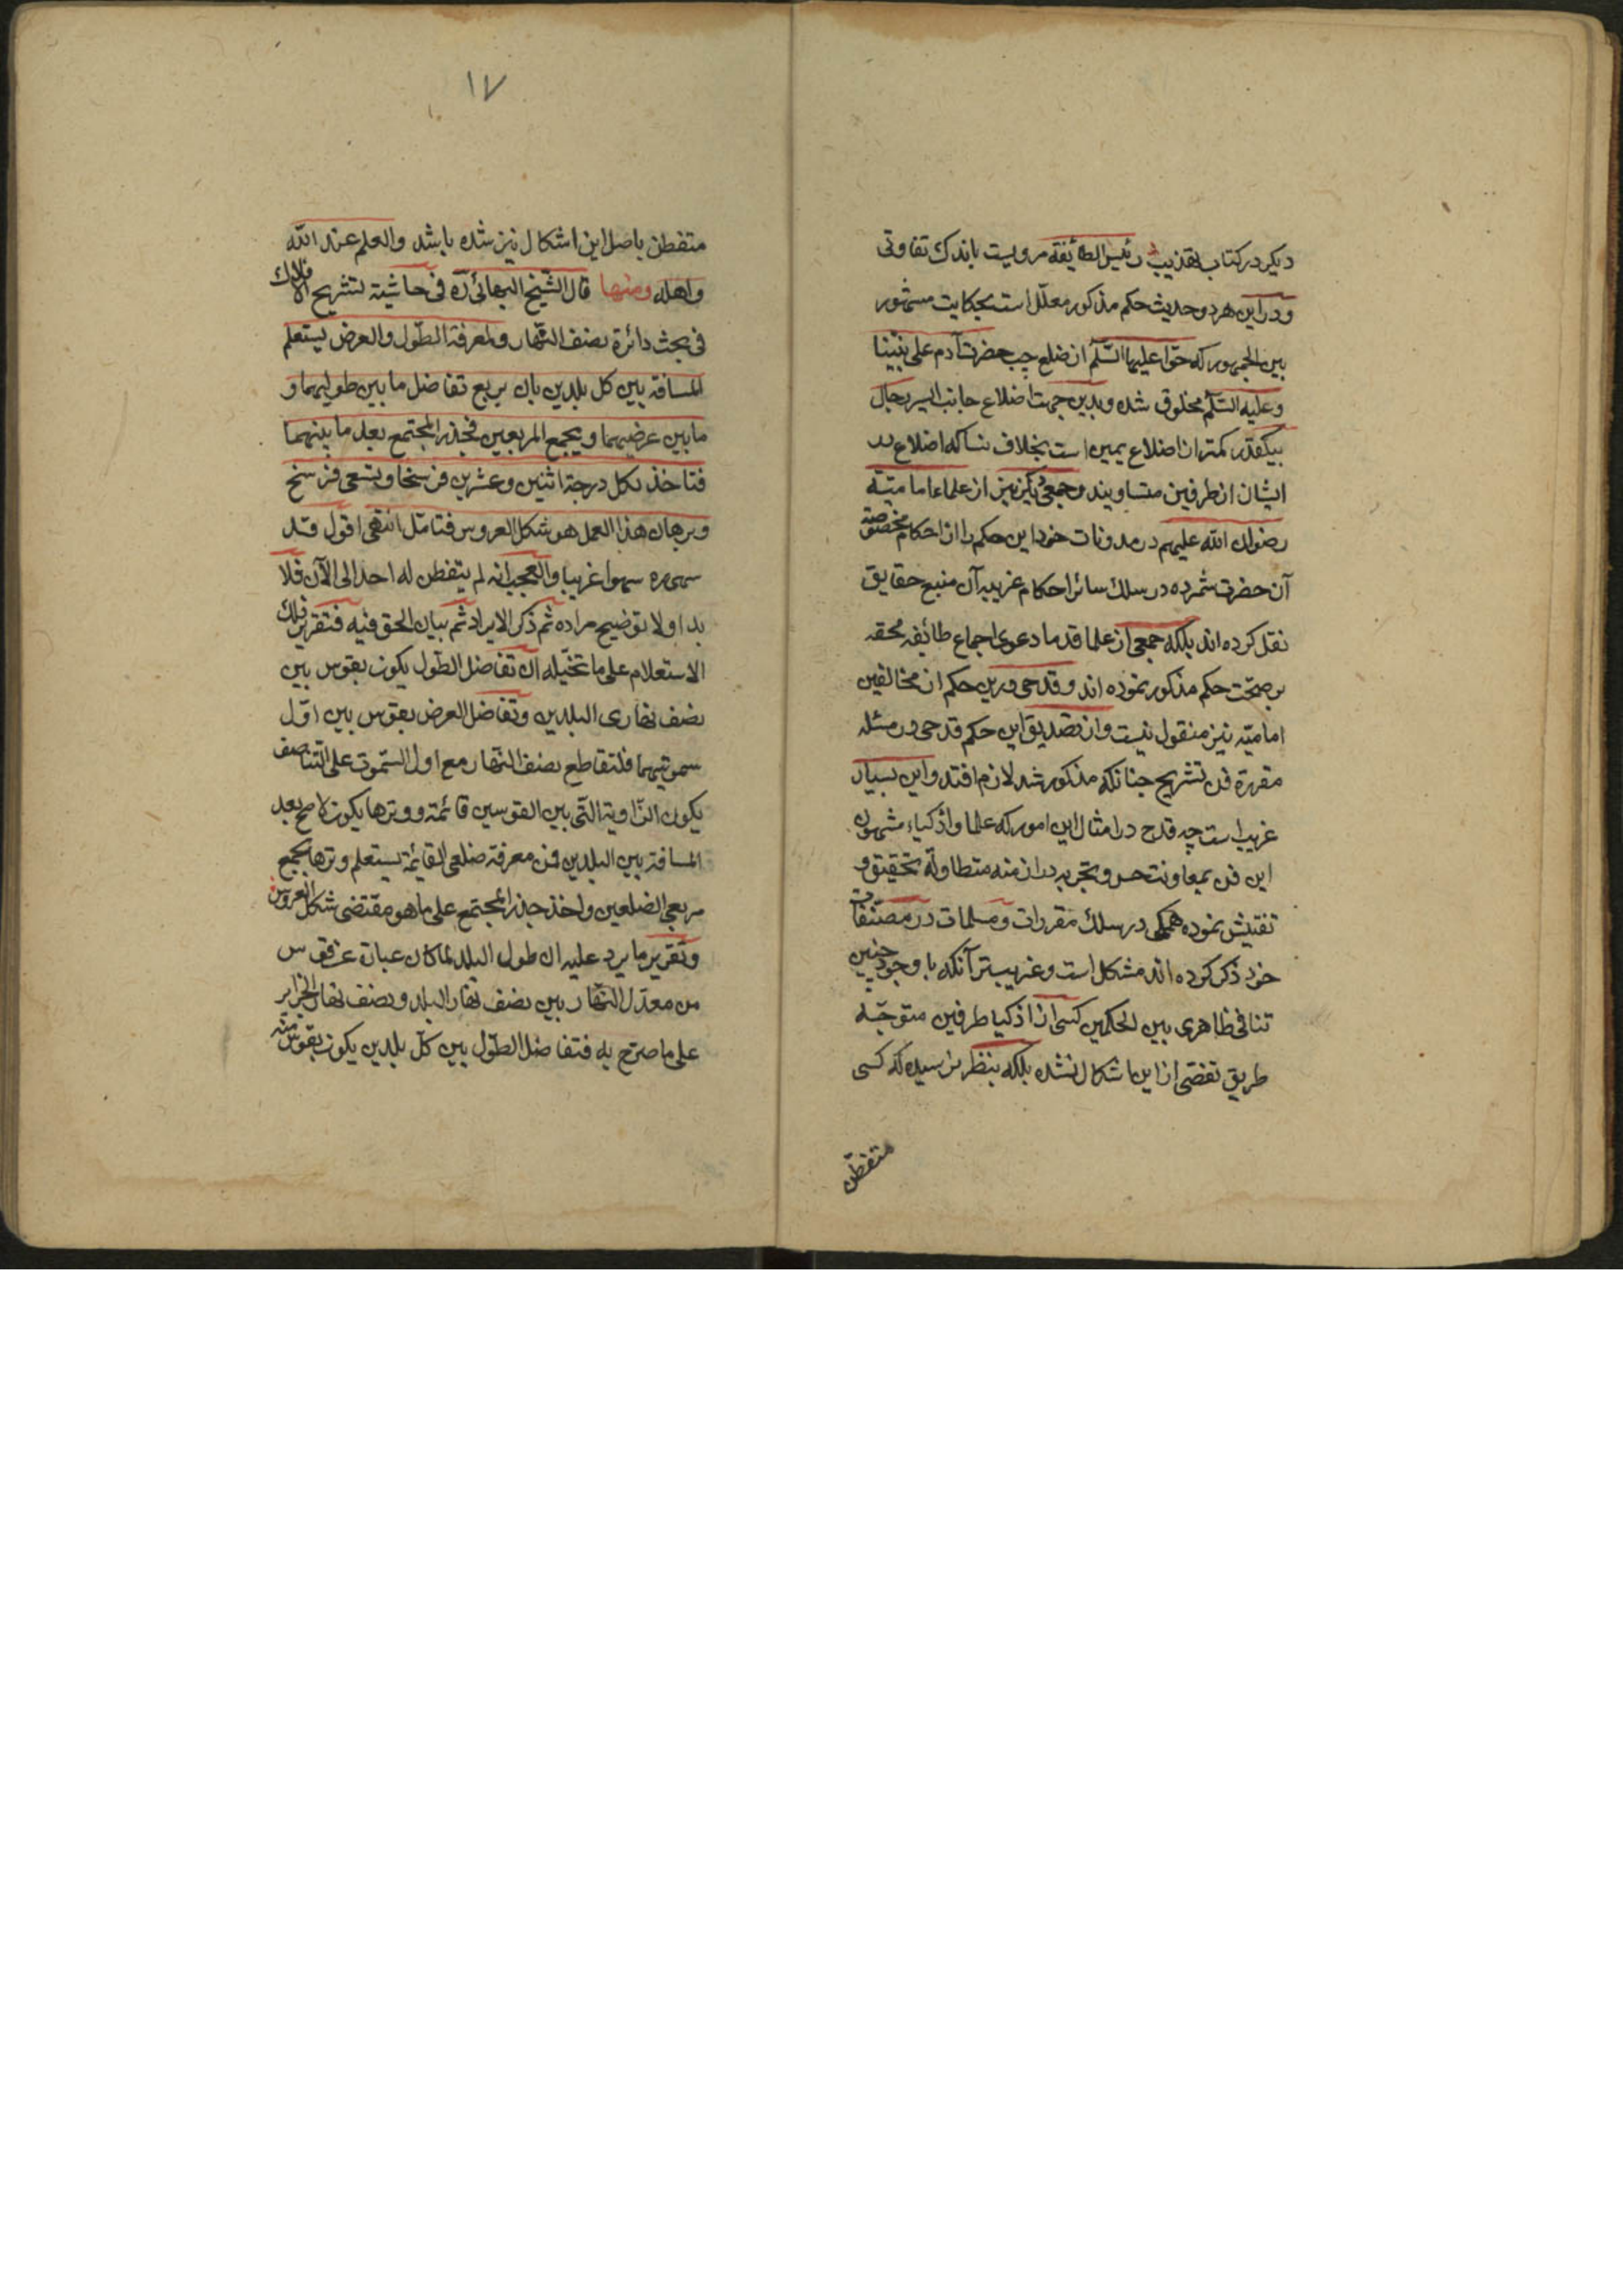 دیکر در کتاب تهذیب رئیس الطائفه مرویست باندک تفاوتی
و در این هر دو حدیث حکم مذکور معلّل است بحکایت مشهور
بین الجمهور که حوّا علیها السّلم از ضلع چپ حضرت آدم علی نبینا
و علیه السّلم مخلوق شده و بدین جهت اضلاع جانب ایسر رجال
بیکقدر کمتر از اضلاع یمین است بخلاف نسا که اضلاع
ایشان از طرفین متساویند و جمعی دیگر نیز از علماء امامیّه
رضوان الله علیهم در مدونات خود این حکم را از احکام مخصوصه
آن حضرت شمرده در سلک سائر احکام غریبه آن منبع حقایق
نقل کرده اند بلکه جمعی از علما قدما دعوی اجماع طائفه محقه
بر صحّت حکم مذکور نموده اند و قدحی درین حکم از مخالفین
امامیّه نیز منقول نیست و از تصدیق این حکم قدحی در مسئله
مقرره فن تشریح چنانکه مذکور شد لازم افتد و این بسیار
غریب است چه قدح در امثال این امور که علما و اذکیاء مشهور
این فن بمعاونت حس و تجربه در ازمنه متطاوله تحقیق و
تفتیش نموده همکی در سلک مقررات و مسلمات در مصنّفات
خود ذکر کرده اند مشکل است و غریبتر آنکه با وجود چنین
تنافی ظاهری بین الحکمین کسی از اذکیا طرفین متوجّه
طریق تفصّی از این اشکال نشده بلکه بنظر نرسیده که کسی
متفطّن
١٧
متفطن باصل این اشکال نیز شده باشد والعلم عند الله
واهله ومنها قال الشّیخ البهائی ره فی حاشیة لتشریح الافلاک
فی بحث دائرة نصف النّهار ولمعرفة الطّول والعرض یستعلم
المسافة بین کل بلدین بان یربع تفاضل ما بین طولیهما و
ما بین عرضیهما ویجمع المربعین فجذر المجتمع بعد ما بینهما
فتاخذ لکل درجة اثنین وعشرین فرسخا وتسعی فرسخ
وبرهان هذا العمل هو شکل العروس فتامّل انتهی اقول قد
سهی ره سهوا غریبا والعجب انه لم یتفطن له احد الی الآن فلا
بد اولا توضیح مراده ثم ذکر الایراد ثم بیان الحق فیه فتقریر ذلک
الاستعلام علی ما تخیّله ان تفاضل الطول یکون بقوس بین
نصف نهاری البلدین وتفاضل العرض بقوس بین اوّل
سموتیهما فلتقاطع نصف النّهار مع اول السّموت علی التناصف
یکون الزّاویة الّتی بین القوسین قائمة ووترها یکون لا مح بعد
المسافة بین البلدین فمن معرفة ضلعی القائمة یستعلم وترها بجمع
مربعی الضلعین واخذ جذر المجتمع علی ما هو مقتضی شکل العروس
وتقریر ما یرد علیه ان طول البلد لما کان عبارة عن قوس
من معدّل النّهار بین نصف نهار البلد ونصف نهار الجزایر
علی ما صرّح به فتفاضل الطّول بین کلّ بلدین یکون بقوس منه